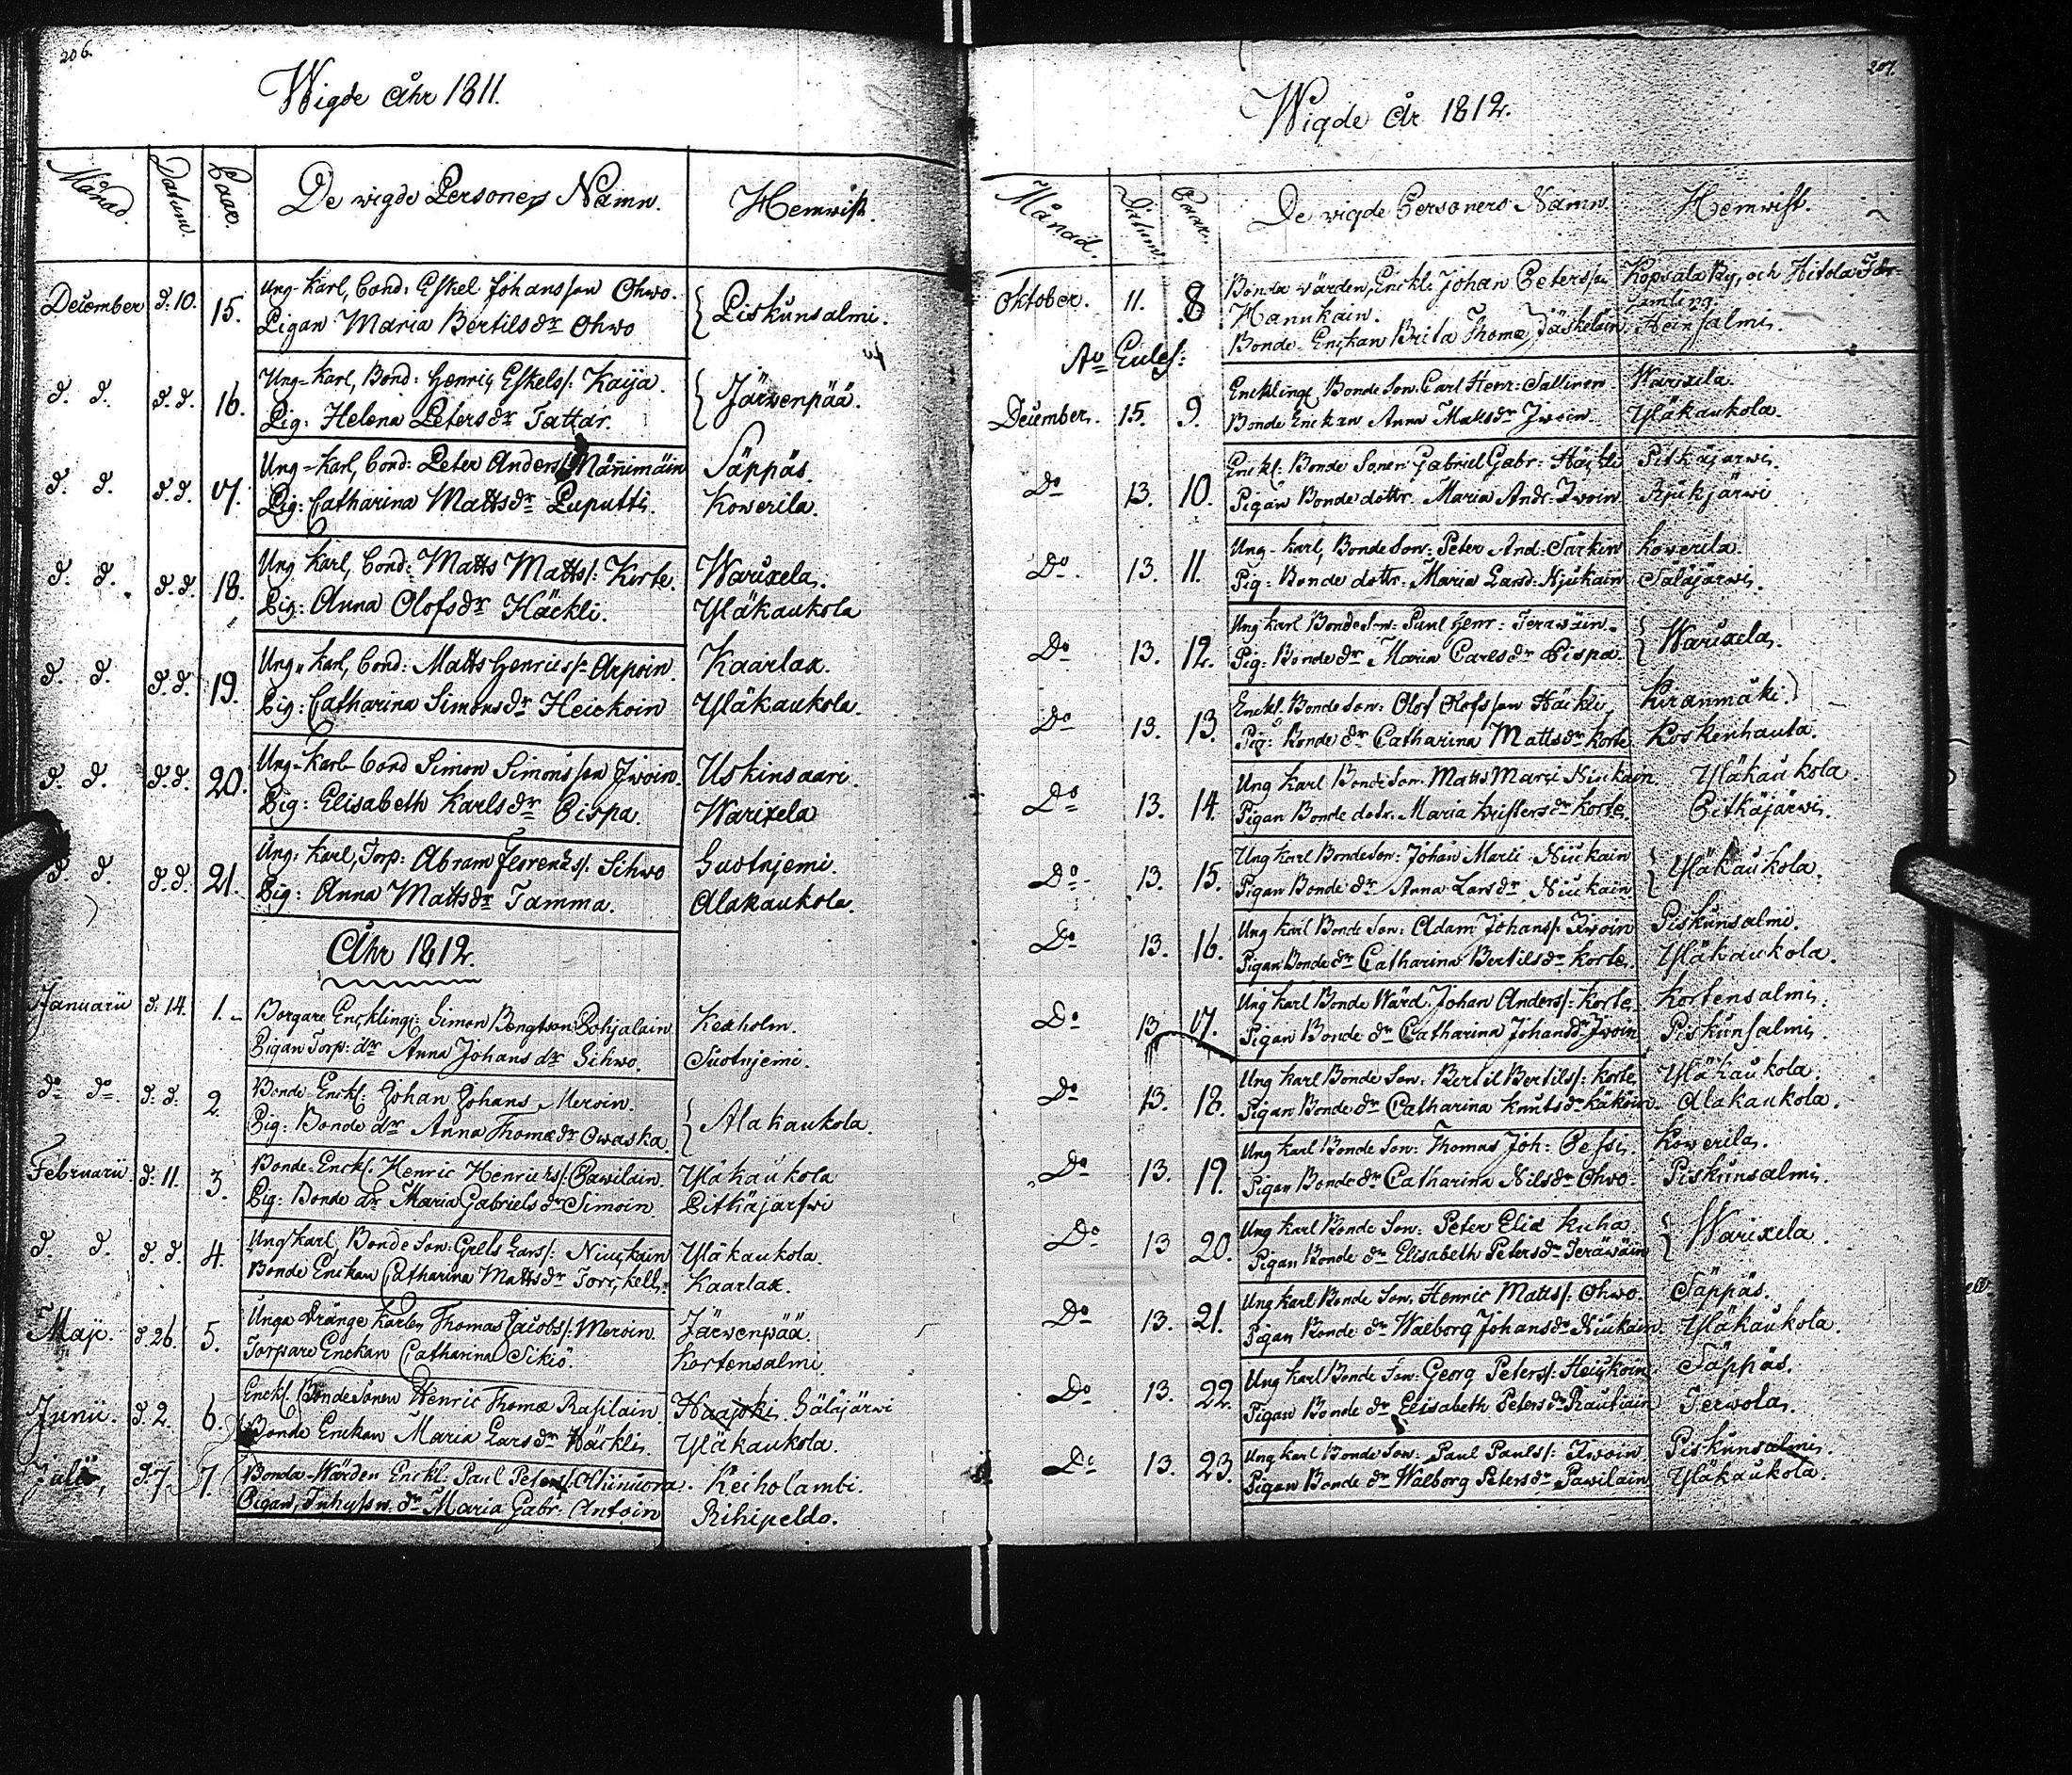 206.
Wigde åhr 1811.
Månad. Datum. Paar. De wigde Personers Namn. Hemwist.
December d. 10. 15. Ung-Karl, Bond: Eskel Johansson Ohwo. Piskunsalmi.
Pigan Maria Bertilsdr Ohwo
d. d. d. d. 16. Ung-Karl, Bond: Henric Eskels/: Kaija. Järwenpää.
Pig: Helena Petersdr Tattar.
d. d. d. d. 17. Ung-Karl, Bond: Peter Anders/: Nännimäin Säppäs.
Pig: Catharina Mattsdr Puputti. Kowerila.
d. d. d. d. 18. Ung Karl, Bond: Matts Matts/: Korte. Warixela.
Pig: Anna Olofsdr Häckli. Yläkaukola
d. d. d. d. 19. Ung-Karl, Bond: Matts Henrics/: Arpoin. Kaarlax.
Pig: Catharina Simonsdr Heickoin Yläkaukola.
d. d. d. d. 20. Ung-Karl Bond Simon Simonsson Iwoin. Uskinsaari.
Pig: Elisabeth Karlsdr Pispa. Warixela
d. d. d. d. 21. Ung: Karl, Torp: Abram Lorentz/: Sihwo Suotnjemi.
Pig: Anna Mattsdr Tamma. Alakaukola.
Åhr 1812.
Januarii d. 14. 1. Borgare Enckling: Simon Bengtson Pohjalain Kexholm.
Pigan Torp: dr Anna Johansdr Sihwo. Suotnjemi.
do do. d. d. 2. Bonde Enckl: Johan Johans Meroin. Alakaukola.
Pig: Bonde dr Anna Thomædr Owaska
Februarii d. 11. 3. Bonde: Enckl. Henric Henrics/: Pawilain. Yläkaukola
Pig: Bonde dr Maria Gabrielsdr Simoin. Pitkäjärfwi
d. d. d. d. 4. Ung karl, Bonde Son: Grels Lars/: Niuckain Yläkaukola.
Bonde Enckan Catharina Mattsdr Torckell: Kaarlax.
Maji. d. 26. 5. Unga Dränge Karlen Thomas Jacobs/: Meroin. Järwenpää.
Torpare Enckan Catharina Sikiö. Kortensalmi
Junii. d. 2. 6. Enckl. Bonde Sonen Henric Thomæ Rasilain. Haajoki Säläjärwi
Bonde Enckan Maria Larsdr Häckli. Yläkaukola.
Julii, d. 7. 7. Bonda-Wärden Enckl. Paul Peters/: Keiholambi.
Pigan, Inhyssn. dr Maria Gabr. Antoin Rihipeldo.
207.
Wigde år 1812.
Månad. Datum Paar. De wigde Personers Namn. Hemwist.
Oktober. 11. 8 Bonde wärden, Enckl: Johan Petersson Kopsala By, och Hitola För-
Hanukain. samling.
Bonde-Enckan Brita Thomæ Jäskeläin Heinsalmi.
Ao Eules:
December. 15. 9. Encklinge Bonde Son: Carl Henr: Sallinen Warixela
Bonde Enckan Anna Mattsdr Iwoin. Yläkaukola.
Do 13. 10. Enckl: Bonde Sonen Gabriel Gabr: Häckli Pitkäjärwi.
Pigan Bonde dottr. Maria Andr. Iwoin Rjukjärwi
Do. 13. 11. Ung-karl, Bonde Son: Peter And: Särkin Kowerila.
Pig: Bonde dottr: Maria Lars: Njukain Säläjärwi.
Do 13. 12. Ung karl Bonde Son: Paul Henr: Teräwäin. Warixela.
Pig: Bonde dr Maria Carlsdr Pispa.
Do 13. 13. Enckl. Bonde Son: Olof Olofsson Häckli Kiranmäki
Pig: Bonde dr Catharina Mattsdr Korte Koskenhauta.
Do 13. 14. Ung karl Bonde Son: Matts Marti Niukain. Yläkaukola.
Pigan Bonde dotr. Maria Kristersdr Korte. Pitkäjärwi.
Do. 13. 15. Ung karl Bonde Son: Johan Marti Niukain Yläkaukola.
Pigan Bonde dr Anna Larsdr Niukain
Do 13. 16. Ung karl Bonde Son: Adam Johans/: Iwoin Piskunsalmi.
Pigan Bonde dr Catharina Bertilsdr Korte. Yläkaukola.
Do 13 17. Ung karl Bonde Wärd. Johan Anders/: Korte. Kortensalmi.
Pigan Bonde dr Catharina Johansdr Iwoin Piskunsalmi
Do 13. 18. Ung karl Bonde Son: Bertil Bertils/: Korte Yläkaukola
Pigan Bonde dr Catharina Knutsdr Käköin. Alakaukola.
Do 13. 19. Ung karl Bonde Son: Thomas Joh: Pessi Kowerila.
Pigan Bonde dr Catharina Nilsdr Ohwo. Piskunsalmi.
Do 13 20. Ung karl Bonde Son: Peter Elia Kuha Warixela.
Pigan Bonde dr Elisabeth Petersdr Teräwäin
Do 13. 21. Ung karl Bonde Son. Henric Matts/: Ohwo. Säppäs.
Pigan Bonde dr Walborg Johansdr Niukain Yläkaukola.
Do 13. 22. Ung karl Bonde Son: Georg Peters/: Heickoin Säppäs.
Pigan Bonde dr Elisabeth Petersdr Rautiain Terwola.
Do 13. 23. Ung karl Bonde Son: Paul Pauls/: Iwoin Piskunsalmi.
Pigan Bonde dr Walborg Petersdr Pawilain Yläkaukola.